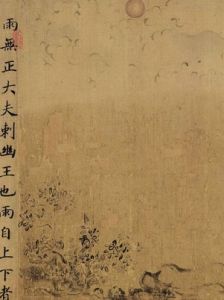 雨無正大夫刺幽王也雨自上下者